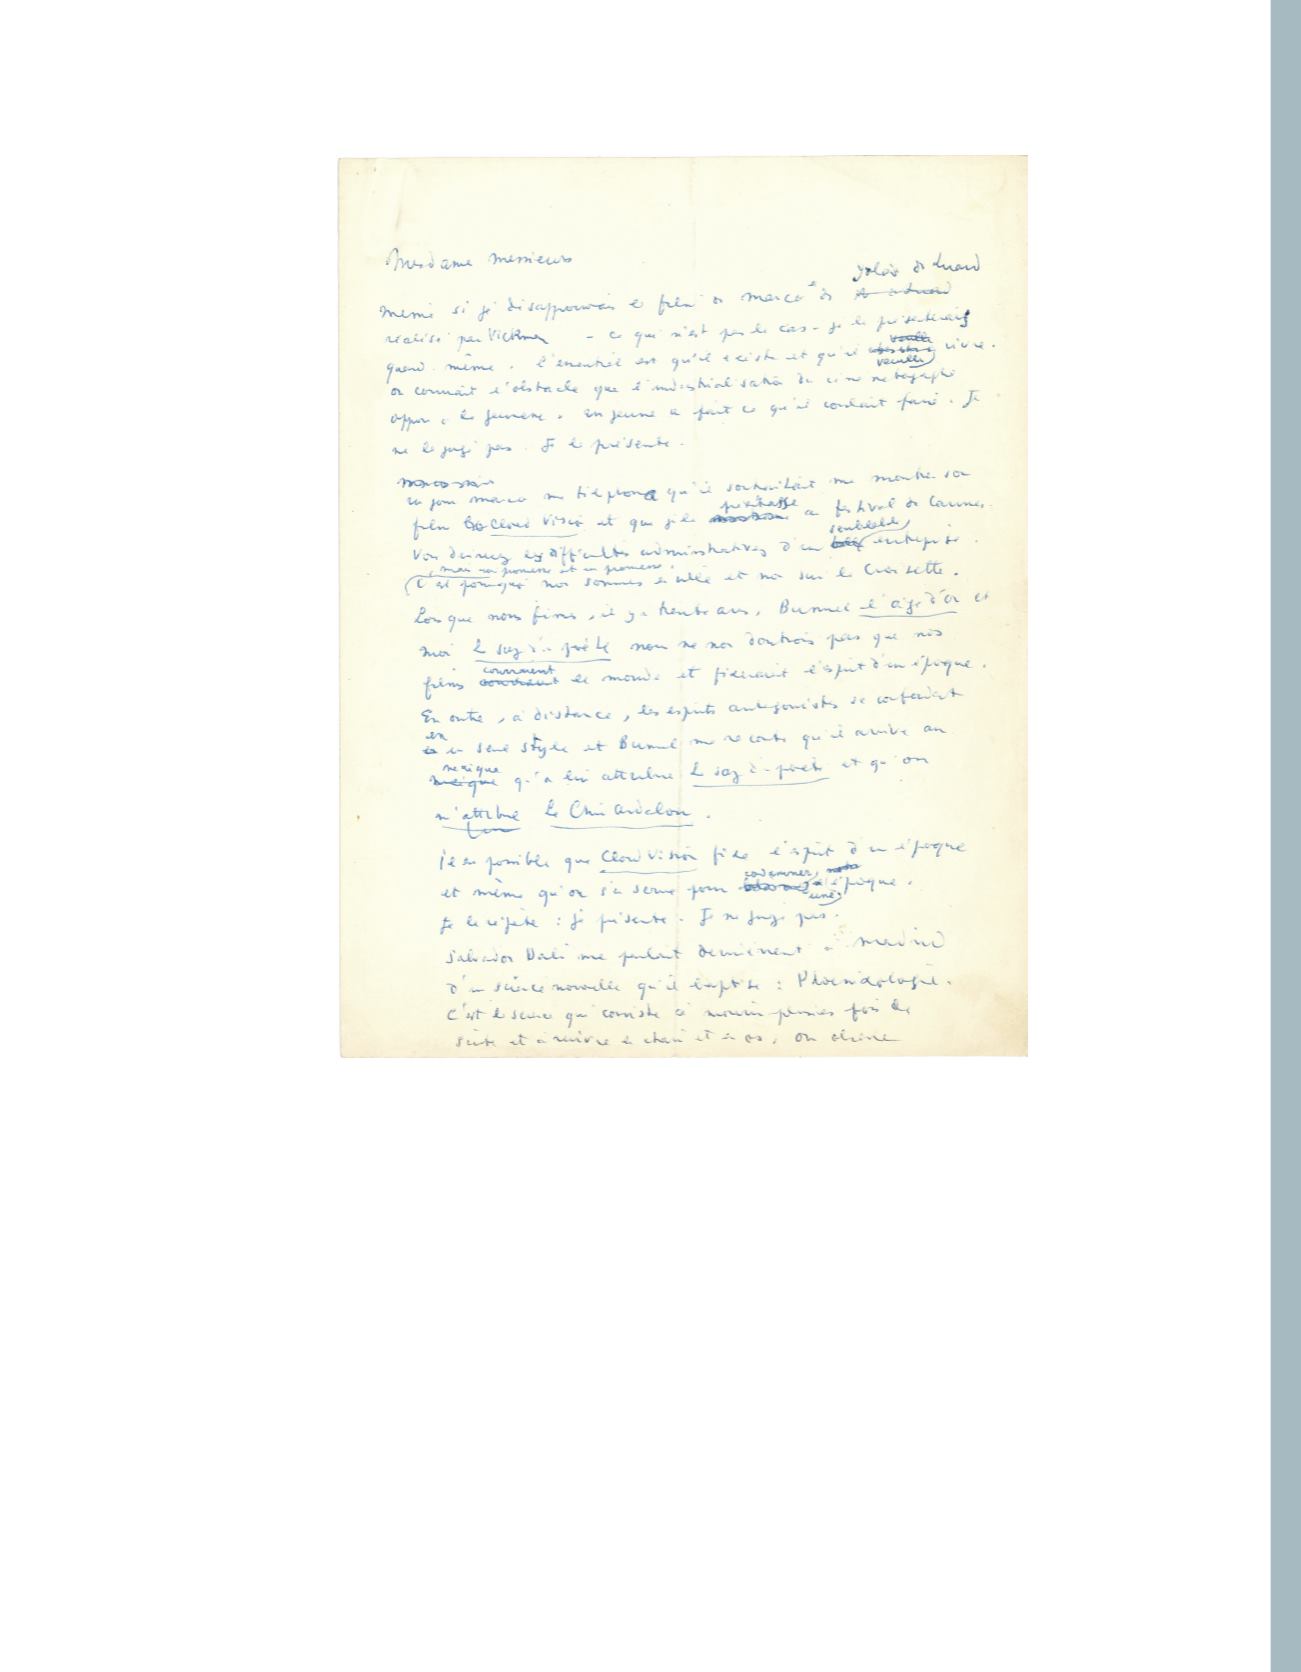 Mesdame messieurs
même si je désapprouvais le film de marco de
réalisé par Vickmen – ce qui n'est pas le cas – je le présenterais
quand même. l'essentiel est qu'il existe et qu'il veuille vivre.
on connait l'obstacle que l'industrialisation du cinématographe
oppose à la jeunesse. un jeune a fait ce qu'il voulait faire. Je
ne le juge pas. Je le présente.
un jour marco me téléphona qu'il souhaitait me montrer son
film Closed Vision et que je le présentasse au festival de Cannes.
Vous devinez les difficultés administratives d'une semblable entreprise.
, mais une promesse est une promesse.
C'est pourquoi nous sommes en ville et non sur la Croisette.
Lorsque nous fîmes, il y a trente ans, Bunuel l'âge d'or et
moi le sang d'un poète nous ne nous doutions pas que nos
films courraient le monde et fixeraient l'esprit d'une époque.
En outre, à distance, les esprits antagonistes se confondent
en un seul style et Bunuel me raconte qu'il arrive au
mexique qu'on lui attribue le sang d'un poète et qu'on
m'attribue le Chien andalou.
Il est possible que Closed Vision fixe l'esprit d'une époque
et même qu'on s'en serve pour condamner une époque.
Je le répète : je présente – Je ne juge pas.
Salvador Dali me parlait dernièrement à Madrid
d'une science nouvelle qu'il baptise : Phoenixologie.
C'est la science qui consiste à mourir plusieurs fois de
suite et à revivre en chair et en os, on